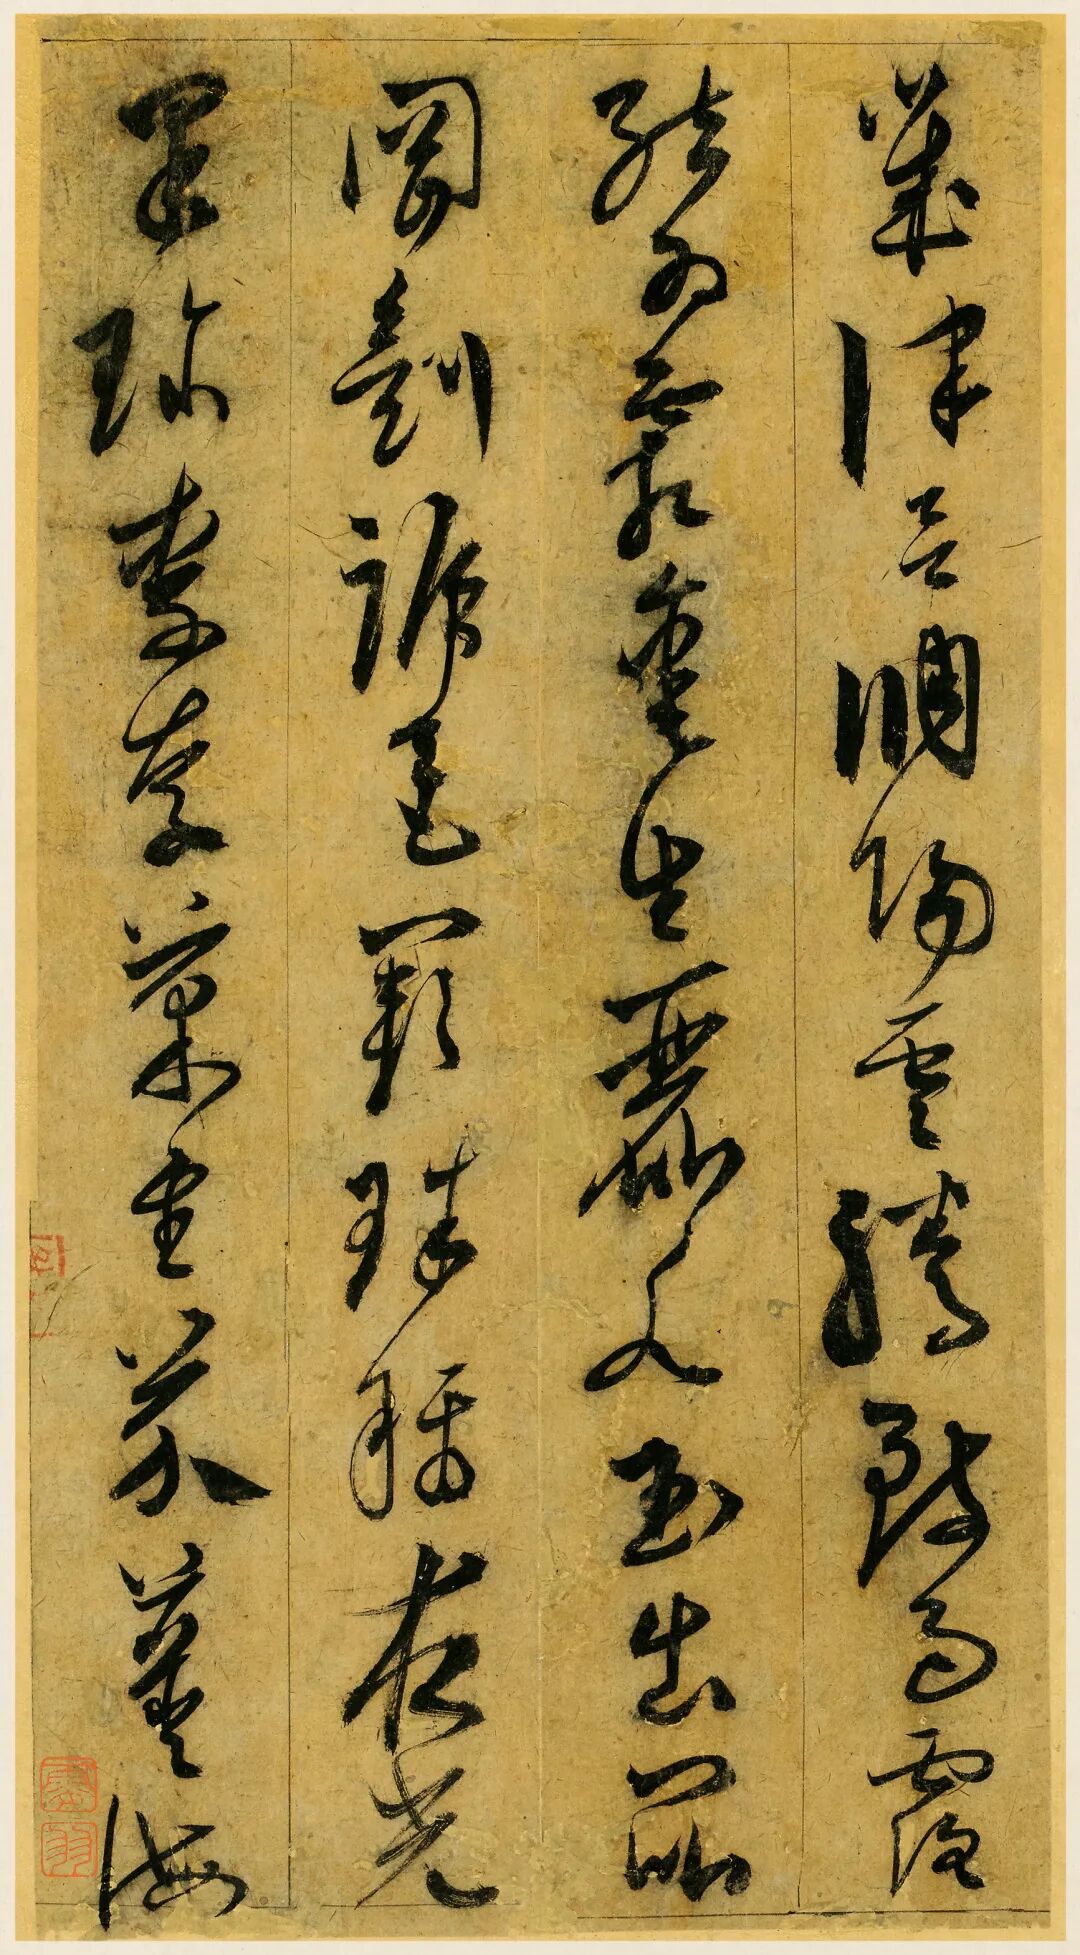 歲律呂調陽雲騰致雨露
結為霜金生麗水玉出崑
岡劍號巨闕珠稱夜光
果珍李柰菜重芥薑海